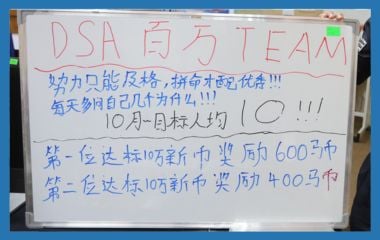 DSA 百万 TEAM
努力只能及格，拼命才配优秀!!!
每天多问自己几个为什么!!!
10月一目标人均 10!!!
第一位达标10万新币奖励600马币
第二位达标10万新币奖励400马币